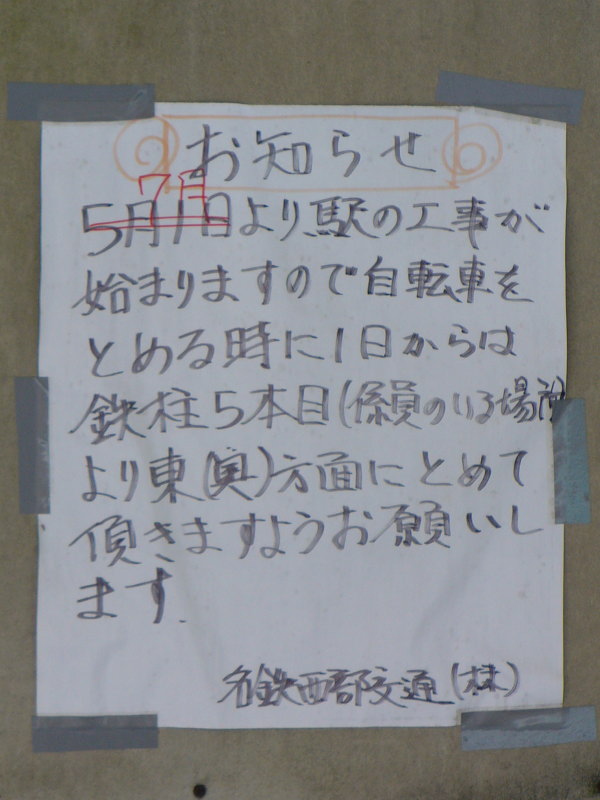 お知らせ
7月
5月1日より駅の工事が
始まりますので自転車を
とめる時に1日からは
鉄柱5本目(係員のいる場所)
より東(奥)方面にとめて
頂きますようお願いし
ます.
名鉄西部交通(株)